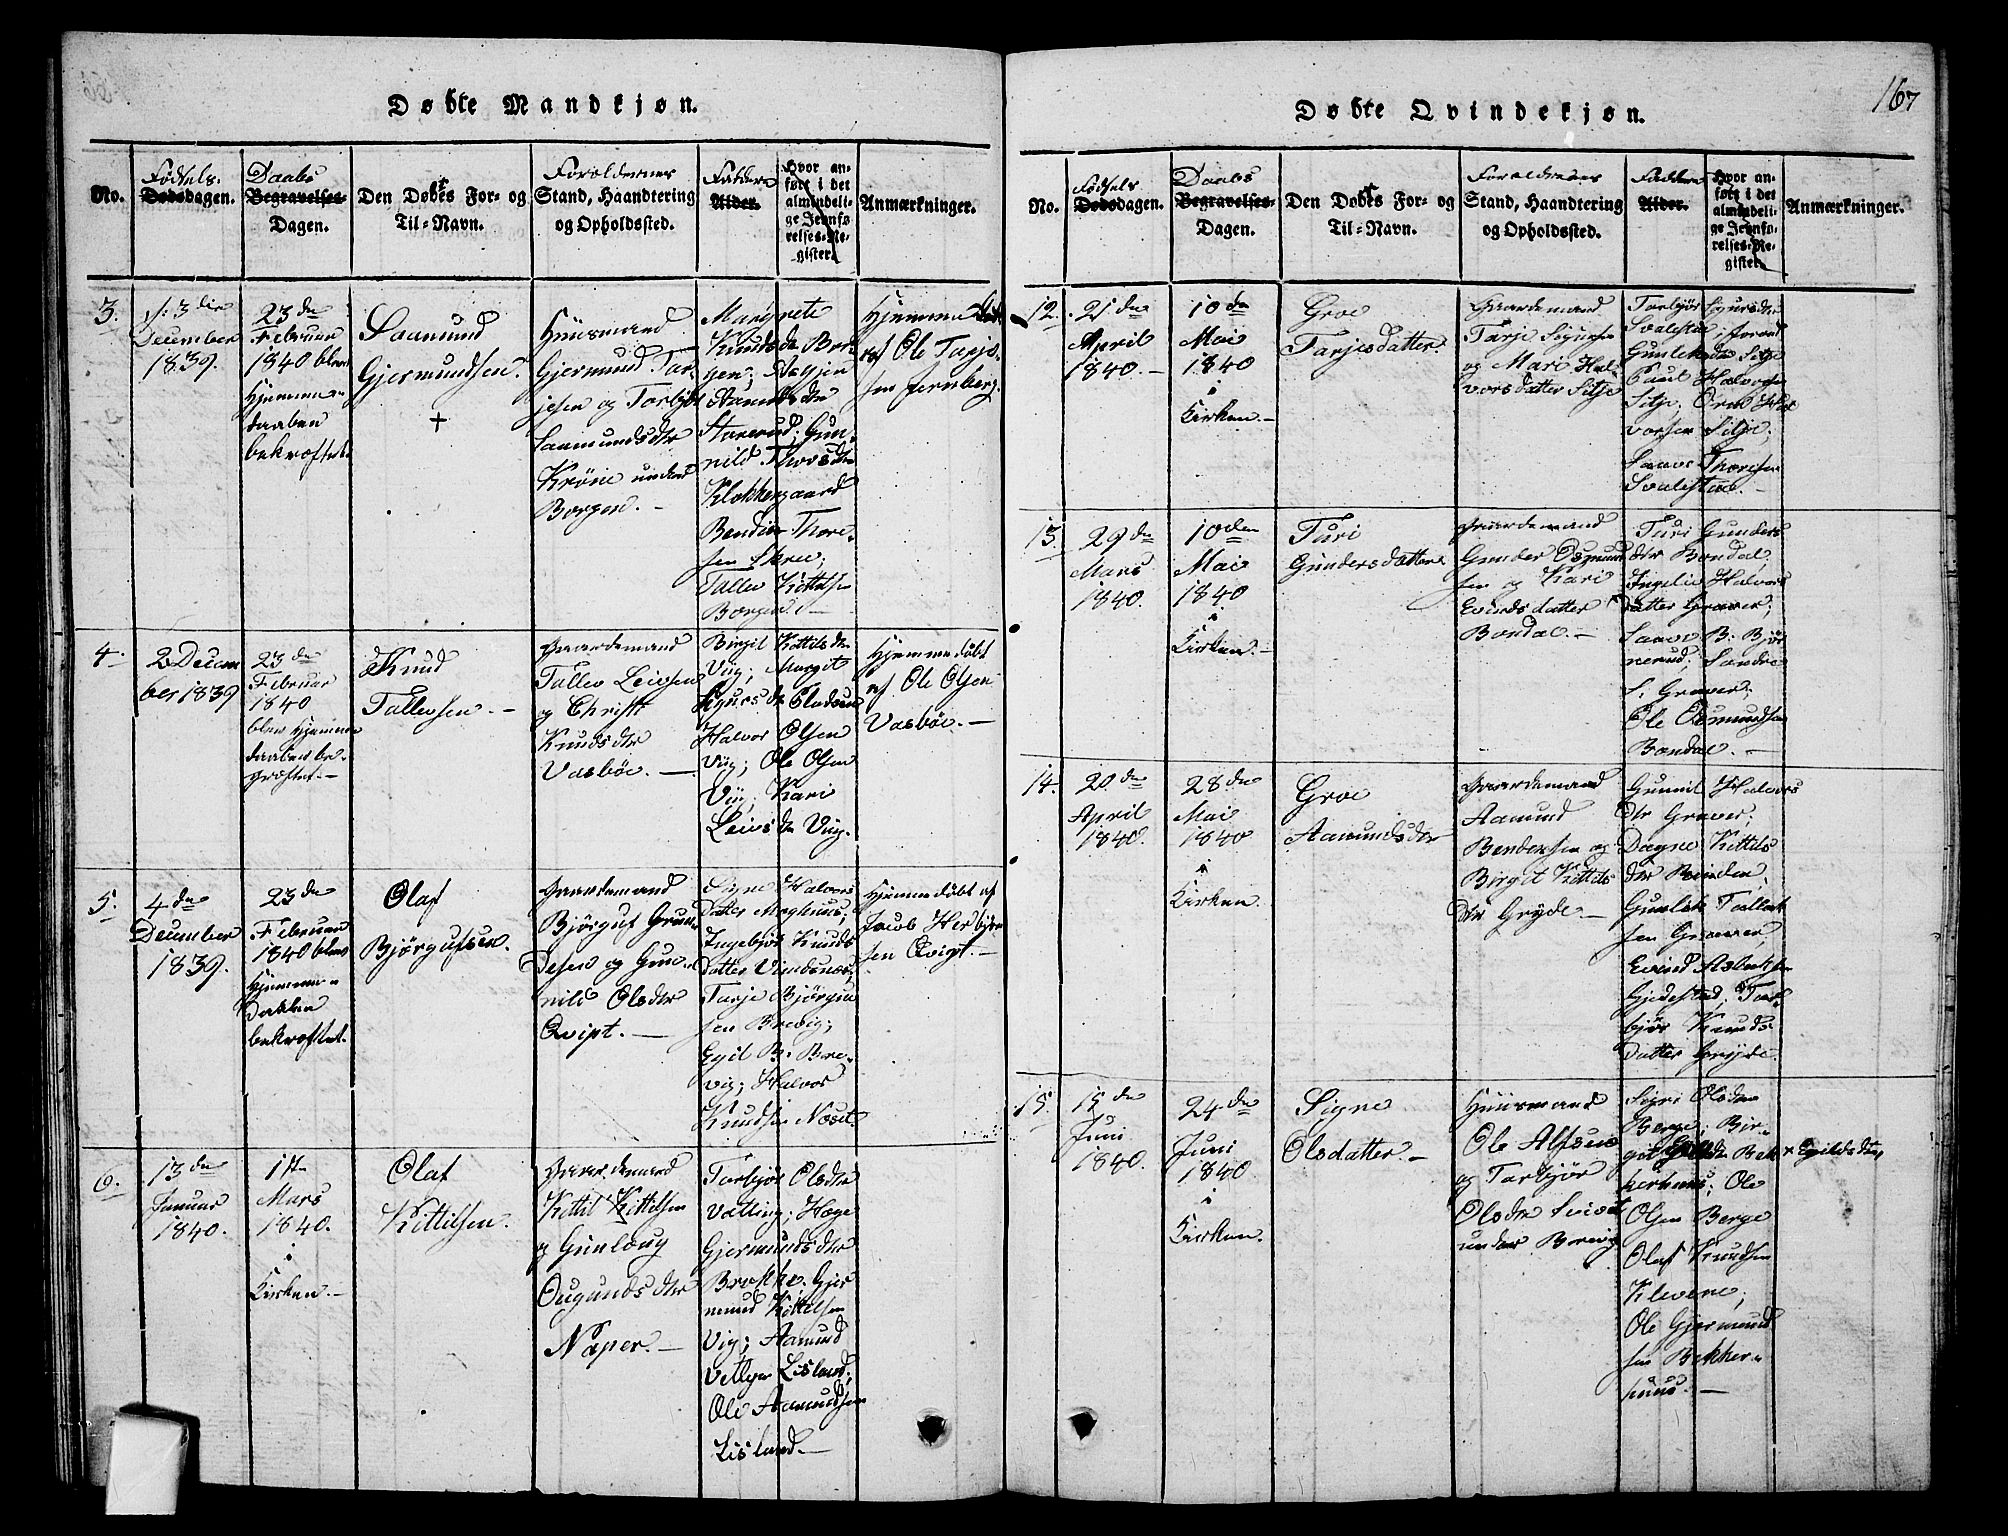 Døbte Mandkjøn.
No.
Fødsels-
Dødsdagen.
Daabs
Begravelses-
Dagen.
Den Døbtes For- og
Til-Navn.
Forældrenes
Stand, Haandtering
og Opholdssted.
Faddere
Alder.
Hvor an-
ført i det
almindeli-
ge Jevnfø-
relses-Re-
gister.
Anmærkninger.
3.
3die
December
1839.
23de
Februar
1840 blev
hjemme-
daaben
bekræftet.
Saamund
Gjermundsen.
+
Huusmand
Gjermund Tar-
jesen og Torbjør
Saamundsdtr
Krøne under
Borgen.
Margrete
Knudsdr Bor-
gen;
Aamundsdr
Starerud; Gun-
nild Thorsdtr
Klokkergaard
Bendix Thore-
sen Skree;
Tallev Kittilsen
Borgen.
Hjemmedøbt
af Ole Tarje-
sen Jernberg.
4.
2 Decem
ber 1839
23de
Februar
1840
blev hjemme
daaben be-
kræftet.
Knud
Tallevsen.
Gaardemand
Tallev Leivsen
og Christi
Knudsdtr
Vasbøe.
Birgit Kittilsdr
Viig; Margit
Sigursdr
Halvor Olsen
Viig; Ole Olsen
Viig; Kari
Leivsdr Viig.
Hjemmedøbt
af Ole Olsen
Vasbøe.
5.
4de
December
1839.
23de
Februar
1840 blev
hjemme-
daaben
bekræftet.
Olaf
Bjørgufsen.
Gaardemand
Bjørguf Grun-
desen og Gun-
nild Olsdtr
Qvipt.
Signe Halvors
datter
Ingebjør Knuds
datter Vindsnæs;
Tarje Bjørgu
sen Brevig;
Egil B. Bre-
vig; Halvor
Knudsen Næset
Hjemmedøbt af
Jacob Herbjørn
sen Qvigt.
6.
13de
Januar
1840.
1ste
Mars
1840.
i
Kirken.
Olaf
Kittilsen.
Gaardemand
Kittil Kittilsen
og Gunloug
Ougundsdtr
Naper.
Torbjør Olsdtr
Vatting; Hæge
Gjermundsdtr
Brokke. Gjer
mund Kittilsen
Viig; Aamund
Vetlyr Lisland;
Ole Aamundsen
Lisland.
167
Døbte Qvindekjøn.
No.
Fødsels
Dødsdagen.
Daabs
Begravelses-
Dagen.
Den Døbtes For- og
Til-Navn.
Forældrenes
Stand, Haandtering
og Opholdssted.
Faddere
Alder.
Hvor an-
ført i det
almindeli-
ge Jevnfø-
relses-Re-
gister.
Anmærkninger.
12.
21de
April
1840.
10de
Mai
1840
i
Kirken.
Groe
Tarjesdatter.
Gaardemand
Tarje Sigurse
og Mari Hal-
vorsdatter Sitje
Torbjør Sigursdr
Svalestad
Gunlek
Paul Halvorsen
Sitje; Orm Hal
vorsen Sitje;
Saave Thoresen
Svalestad.
13.
29de
Mars
1840.
10den
Mai
1840
i
Kirken.
Turi
Gundersdatter
Gaardemand
Gunder Osmund
sen og Kari
Evindsdatter
Bondal.
Turi Gunders
dtr Bondal;
Ingelie Halvors
datter Graver;
Saave B. Bjør
nerud; Sondre
S. Graver;
Ole Osmundsen
Bondal.
14.
20de
April
1840.
28de
Mai
1840
i
Kirken.
Groe
Aamundsdtr
Gaardemand
Aamund
Bendixsen og
Birgit Kittils
dtr Gryde.
Gunnil Halvors
dtr Graver;
Dagne Kittils
dtr
Gunlek Tallak
sen Graver,
Evind Aslaksen
Gjedestad, Tor-
bjør Knuds-
datter Gryde.
15.
15de
Juni
1840.
24de
Juni
1840
i
Kirken.
Signe
Olsdatter.
Huusmand
Ole Alfsen
og Torbjør
Olsdtr
under Brevig
Sigri Olsdr
Berge; Bir-
git Bek
kerhuus; Ole
Olsen Berge
Olaf Knudsen
Klevene;
Ole Gjermund
sen Bekker-
huus.
x Egilsdtr,